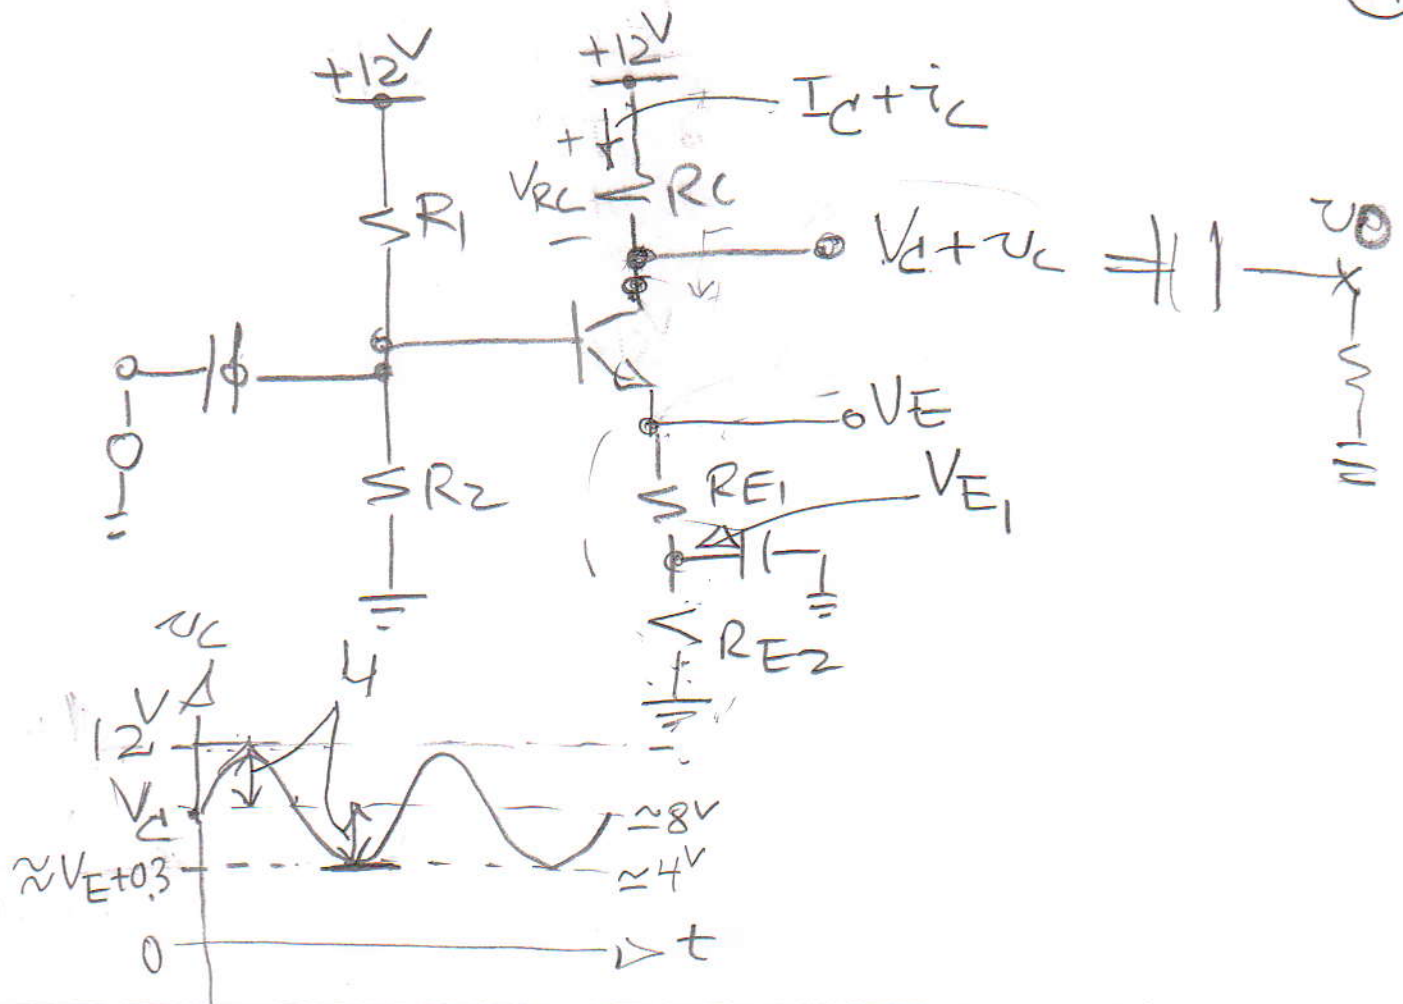 +12V
+12V
IC+iC
+
VRC
RC
−
R1
VC+vC
vO
VE
R2
RE1
VE1
RE2
vC
4
12V
VC
≃8V
≈VE+0.3
≃4V
0
t